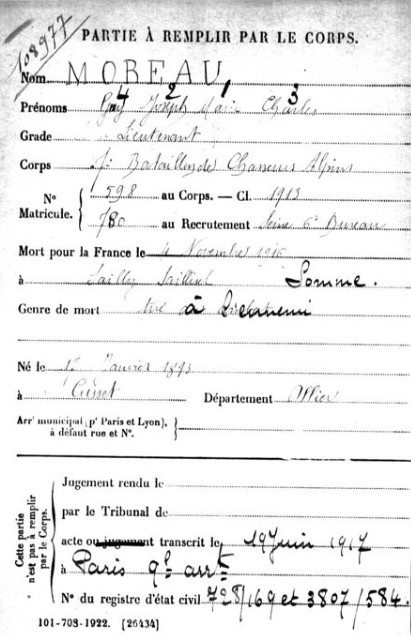 108977
PARTIE À REMPLIR PAR LE CORPS.
Nom MOREAU
4 2 1 3
Prénoms Guy Joseph Marie Charles
Grade Lieutenant
Corps 7e Bataillon de Chasseurs Alpins
N° 598 au Corps. — Cl. 1913
Matricule. 780 au Recrutement Seine 6e Bureau
Mort pour la France le 4 Novembre 1916
à Sailly Saillisel Somme.
Genre de mort tué à l'ennemi
Né le 1er Janvier 1893
à Département Allier
Arrt municipal (pr Paris et Lyon),
à défaut rue et N°.
Cette partie n'est pas à remplir par le Corps.
Jugement rendu le
par le Tribunal de
acte ou jugement transcrit le 19 juin 1917
à Paris 9e arrt
N° du registre d'état civil 728/169 et 3807/584.
101-708-1922. [26434]